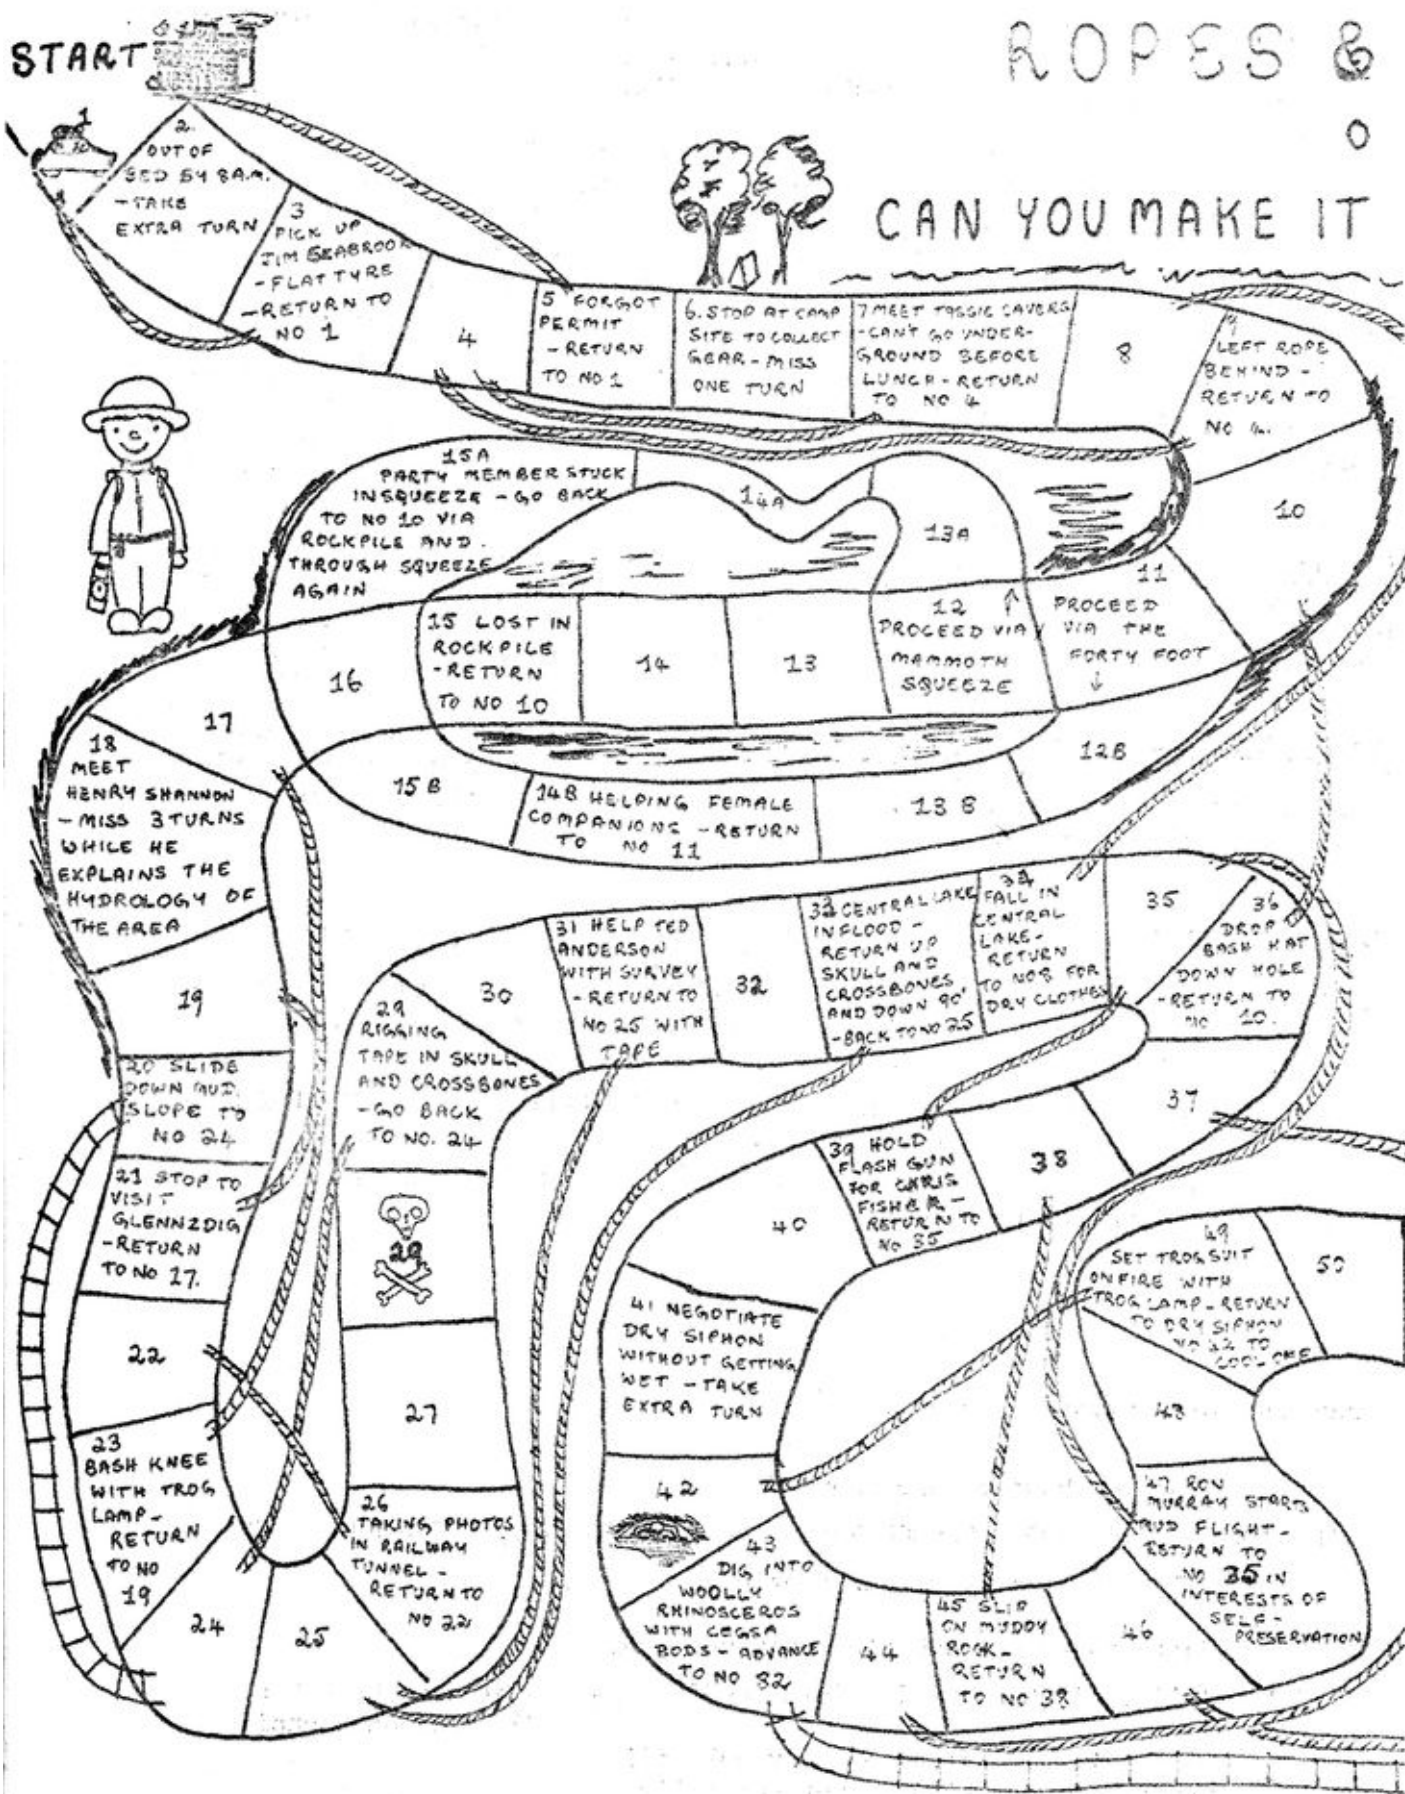 START
ROPES &
CAN YOU MAKE IT
1
2.
OUT OF
BED BY 8 A.M.
- TAKE
EXTRA TURN
3
PICK UP
JIM SEABROOK
- FLAT TYRE
- RETURN TO
NO 1
4
5 FORGOT
PERMIT
- RETURN
TO NO 1
6. STOP AT CAMP
SITE TO COLLECT
GEAR - MISS
ONE TURN
7 MEET TASSIE CAVERS
- CAN'T GO UNDER-
GROUND BEFORE
LUNCH - RETURN
TO NO 4
8
9
LEFT ROPE
BEHIND -
RETURN TO
NO 4.
10
11
PROCEED
VIA THE
FORTY FOOT
↓
12 ↑
PROCEED VIA
MAMMOTH
SQUEEZE
13
14
15 LOST IN
ROCKPILE
- RETURN
TO NO 10
13A
14A
15A
PARTY MEMBER STUCK
IN SQUEEZE - GO BACK
TO NO 10 VIA
ROCKPILE AND
THROUGH SQUEEZE
AGAIN
12B
13B
14B HELPING FEMALE
COMPANIONS - RETURN
TO NO 11
15B
16
17
18
MEET
HENRY SHANNON
- MISS 3 TURNS
WHILE HE
EXPLAINS THE
HYDROLOGY OF
THE AREA
19
20 SLIDE
DOWN MUD
SLOPE TO
NO 24
21 STOP TO
VISIT
GLENNZDIG
- RETURN
TO NO 17.
22
23
BASH KNEE
WITH TROG
LAMP -
RETURN
TO NO
19
24
25
26
TAKING PHOTOS
IN RAILWAY
TUNNEL -
RETURN TO
NO 22
27
29
RIGGING
TAPE IN SKULL
AND CROSSBONES
- GO BACK
TO NO. 24
30
31 HELP TED
ANDERSON
WITH SURVEY
- RETURN TO
NO 25 WITH
TAPE
32
33 CENTRAL LAKE
IN FLOOD -
RETURN UP
SKULL AND
CROSSBONES
AND DOWN 90'
- BACK TO NO 25
34
FALL IN
CENTRAL
LAKE -
RETURN
TO NO 8 FOR
DRY CLOTHES
35
36
DROP
BASH HAT
DOWN HOLE
- RETURN TO
NO 10.
37
38
39 HOLD
FLASH GUN
FOR CHRIS
FISHER -
RETURN TO
NO 35
40
41 NEGOTIATE
DRY SIPHON
WITHOUT GETTING
WET - TAKE
EXTRA TURN
42
43
DIG INTO
WOOLLY
RHINOSCEROS
WITH CEGSA
BODS - ADVANCE
TO NO 82
44
45 SLIP
ON MUDDY
ROCK -
RETURN
TO NO 38
46
47 RON
MURRAY STARTS
MUD FLIGHT -
RETURN TO
NO 35 IN
INTERESTS OF
SELF-
PRESERVATION
48
49
SET TROGSUIT
ON FIRE WITH
TROG LAMP - RETURN
TO DRY SIPHON
NO 42 TO
COOL ONE
50